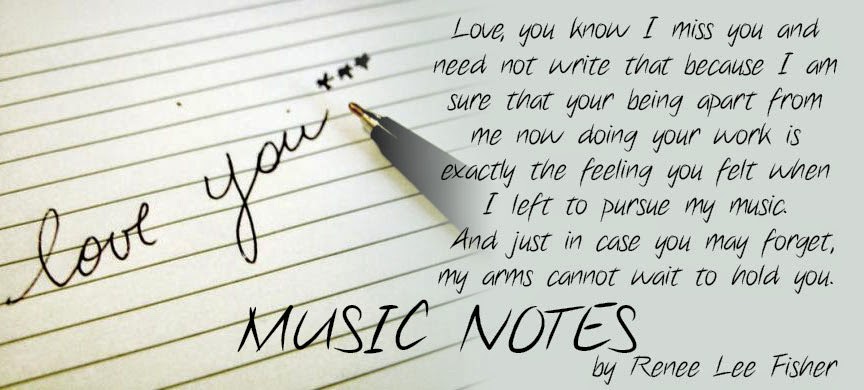 love you***
Love, you know I miss you and
need not write that because I am
sure that your being apart from
me now doing your work is
exactly the feeling you felt when
I left to pursue my music.
And just in case you may forget,
my arms cannot wait to hold you.
MUSIC NOTES
by Renee Lee Fisher